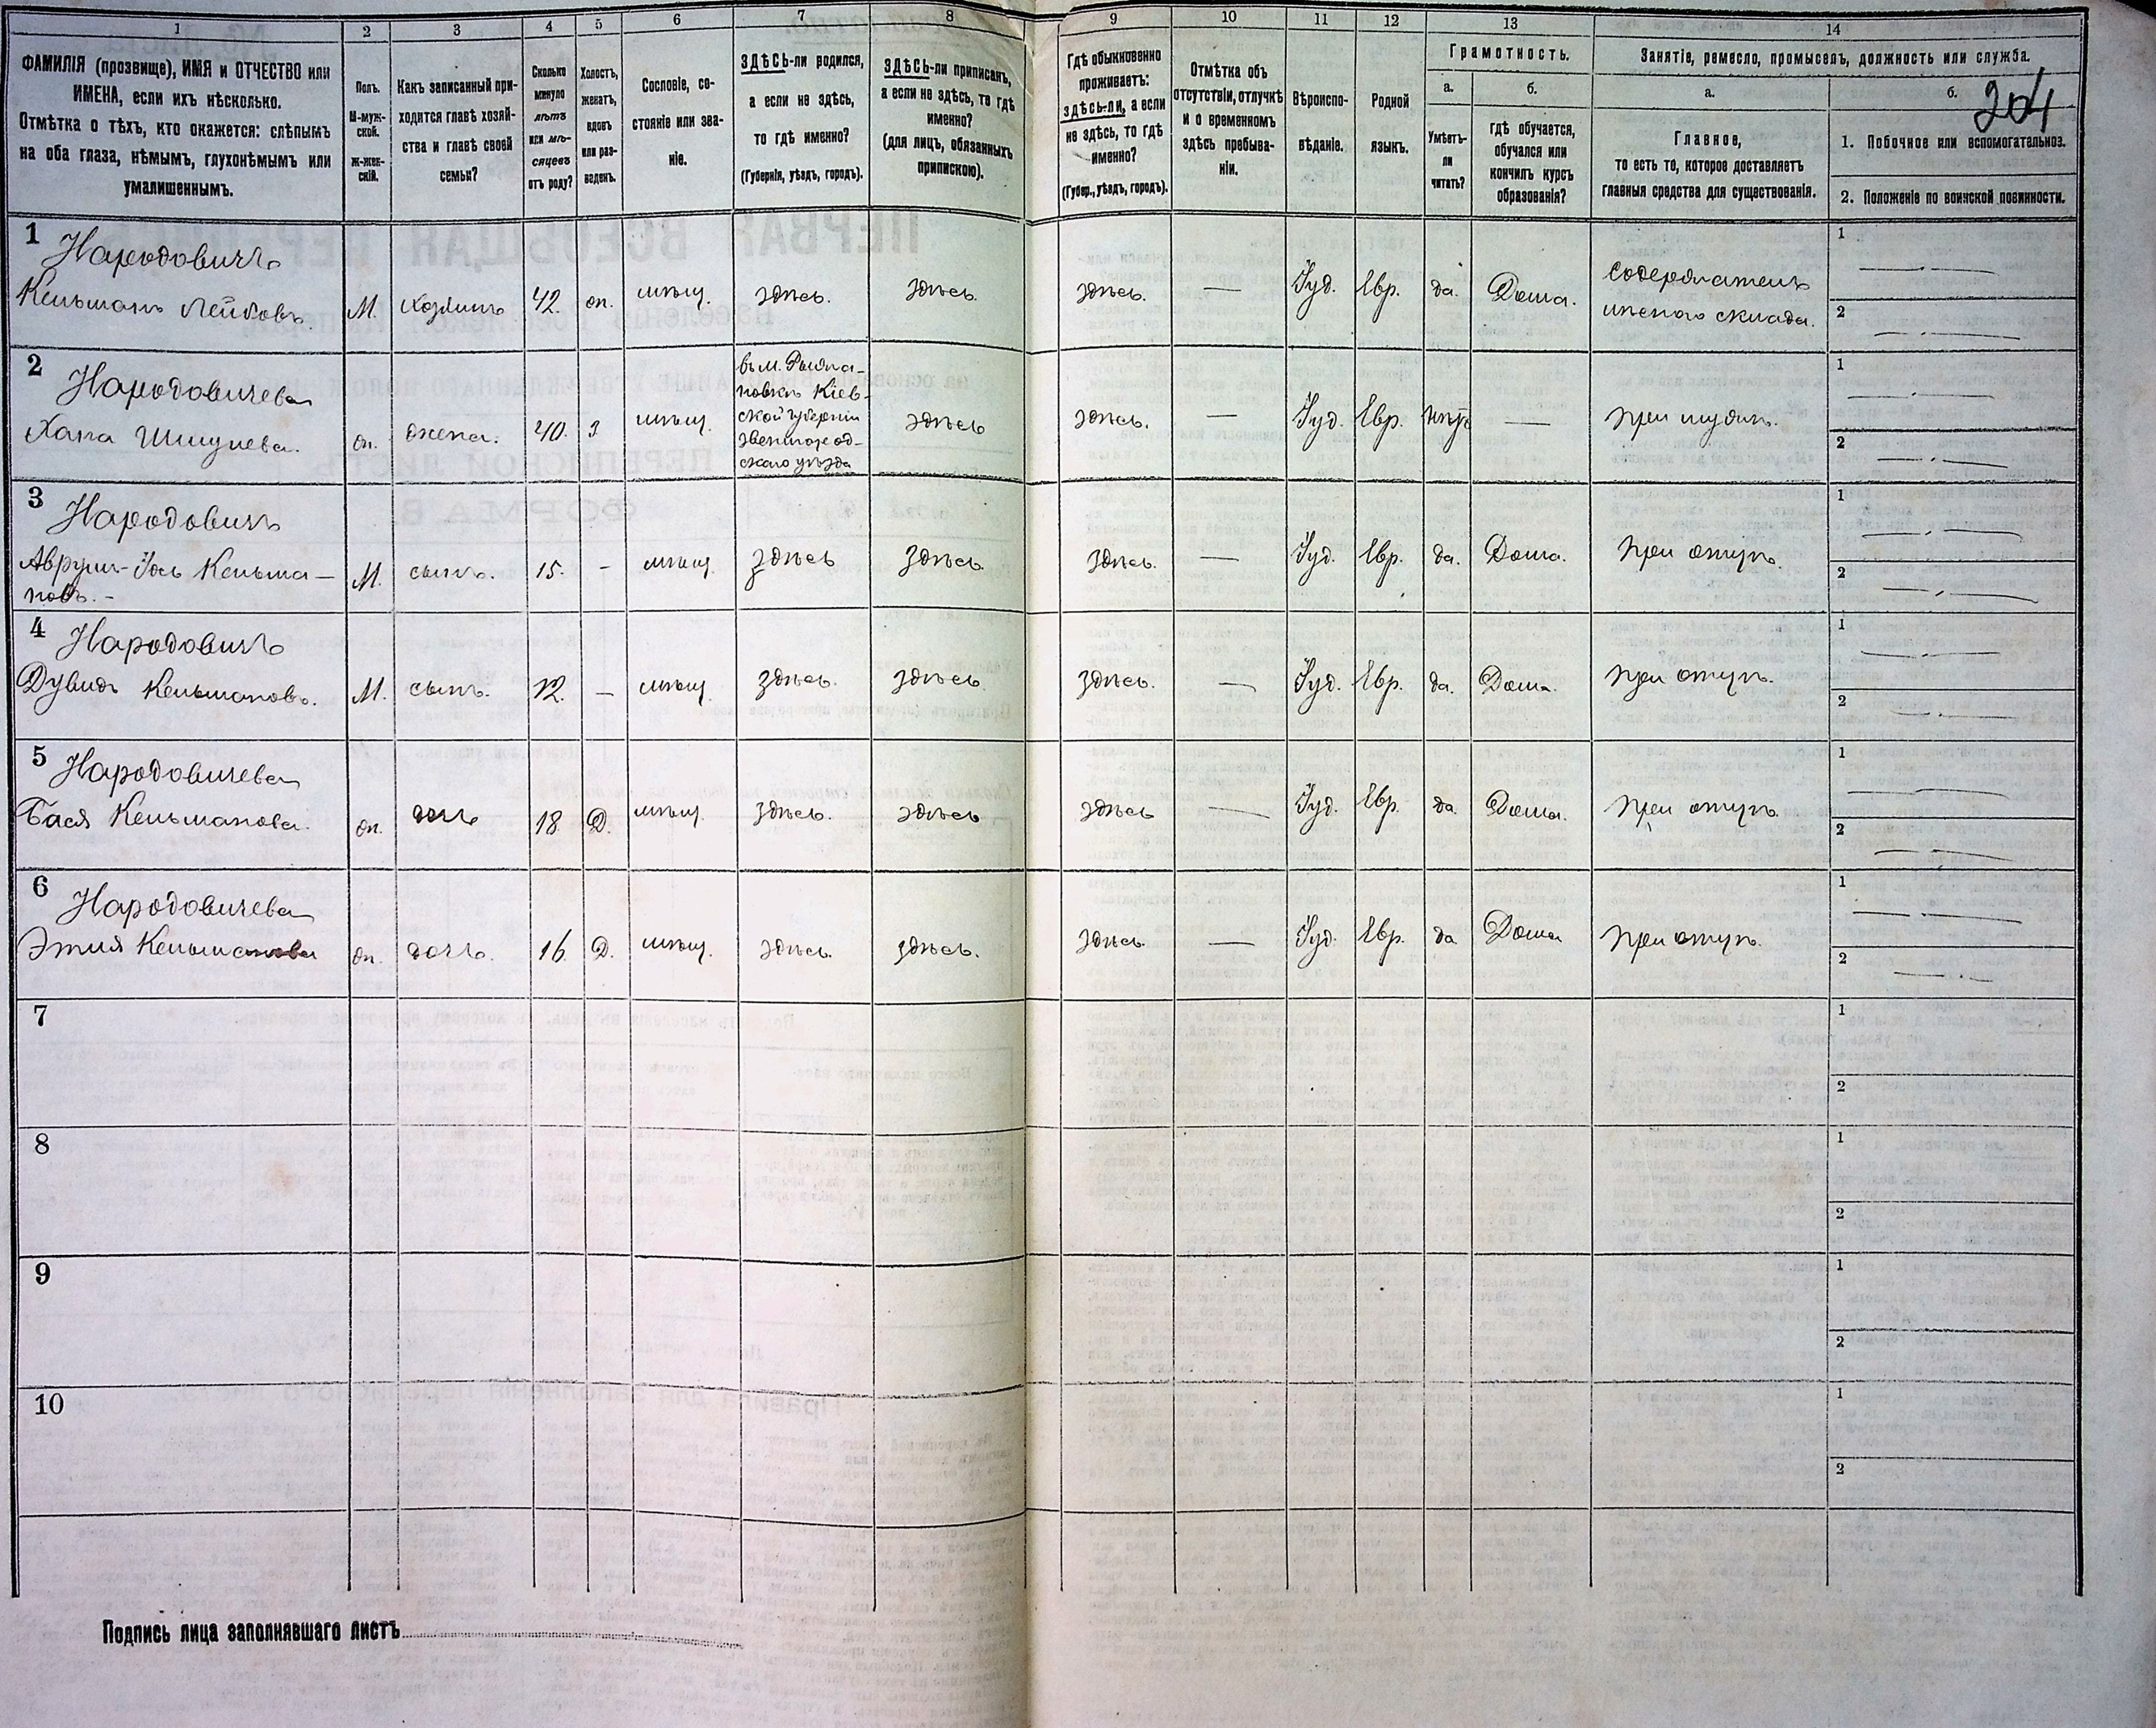 1 2 3 4 5 6 7 8 9 10 11 12 13 14
ФАМИЛІЯ (прозвище), ИМЯ и ОТЧЕСТВО или
ИМЕНА, если ихъ нѣсколько.
Отмѣтка о тѣхъ, кто окажется: слѣпымъ
на оба глаза, нѣмымъ, глухонѣмымъ или
умалишеннымъ.
Полъ.
М-муж-
ской.
Ж-жен-
скій.
Какъ записанный при-
ходится главѣ хозяй-
ства и главѣ своей
семьи?
Сколько
минуло
лѣтъ
или мѣ-
сяцевъ
отъ роду?
Холостъ,
женатъ,
вдовъ
или раз-
веденъ.
Сословіе, со-
стояніе или зва-
ніе.
ЗДѢСЬ-ли родился,
а если не здѣсь,
то гдѣ именно?
(Губернія, уѣздъ, городъ).
ЗДѢСЬ-ли приписанъ,
а если не здѣсь, то гдѣ
именно?
(для лицъ, обязанныхъ
припискою).
Гдѣ обыкновенно
проживаетъ:
здѣсь-ли, а если
не здѣсь, то гдѣ
именно?
(Губер., уѣздъ, городъ).
Отмѣтка объ
отсутствіи, отлучкѣ
и о временномъ
здѣсь пребыва-
ніи.
Вѣроиспо-
вѣданіе.
Родной
языкъ.
Грамотность.
а.
Умѣетъ-
ли
читать?
б.
гдѣ обучается,
обучался или
кончилъ курсъ
образованія?
Занятіе, ремесло, промыселъ, должность или служба.
а.
Главное,
то есть то, которое доставляетъ
главныя средства для существованія.
б.
204
1. Побочное или вспомогательное.
2. Положеніе по воинской повинности.
1 Народовичъ
Кельманъ Лейбовъ. М. хозяинъ 42. жн. мѣщ. здѣсь. здѣсь. здѣсь. — Іуд. Евр. да. Дома. Содержатель
лѣсного склада.
1
2
2 Народовичева
Хана Шмулева. ж. жена. 40. З мѣщ.
въ м. Рыжа-
новкѣ Кіев-
ской губерніи
Звенигород-
скаго уѣзда
здѣсь здѣсь. — Іуд. Евр. нѣтъ — при мужѣ.
1
2
3 Народовичъ
Аврум-Іось Кельма-
новъ. - М. сынъ. 15. - мѣщ. здѣсь здѣсь. здѣсь. — Іуд. Евр. да. Дома. при отцѣ.
1
2
4 Народовичъ
Дувидъ Кельмановъ. М. сынъ. 12. — мѣщ. здѣсь. здѣсь здѣсь. — Іуд. Евр. да. Дома. при отцѣ.
1
2
5 Народовичева
Бася Кельманова. ж. дочь 18 Д. мѣщ. здѣсь. здѣсь здѣсь — Іуд. Евр. да. Дома. при отцѣ
1
2
6 Народовичева
Этля Кельманова ж. дочь. 16. Д. мѣщ. здѣсь. здѣсь. здѣсь. — Іуд. Евр. да Дома при отцѣ.
1
2
7
1
2
8
1
2
9
1
2
10
1
2
Подпись лица заполнявшаго листъ